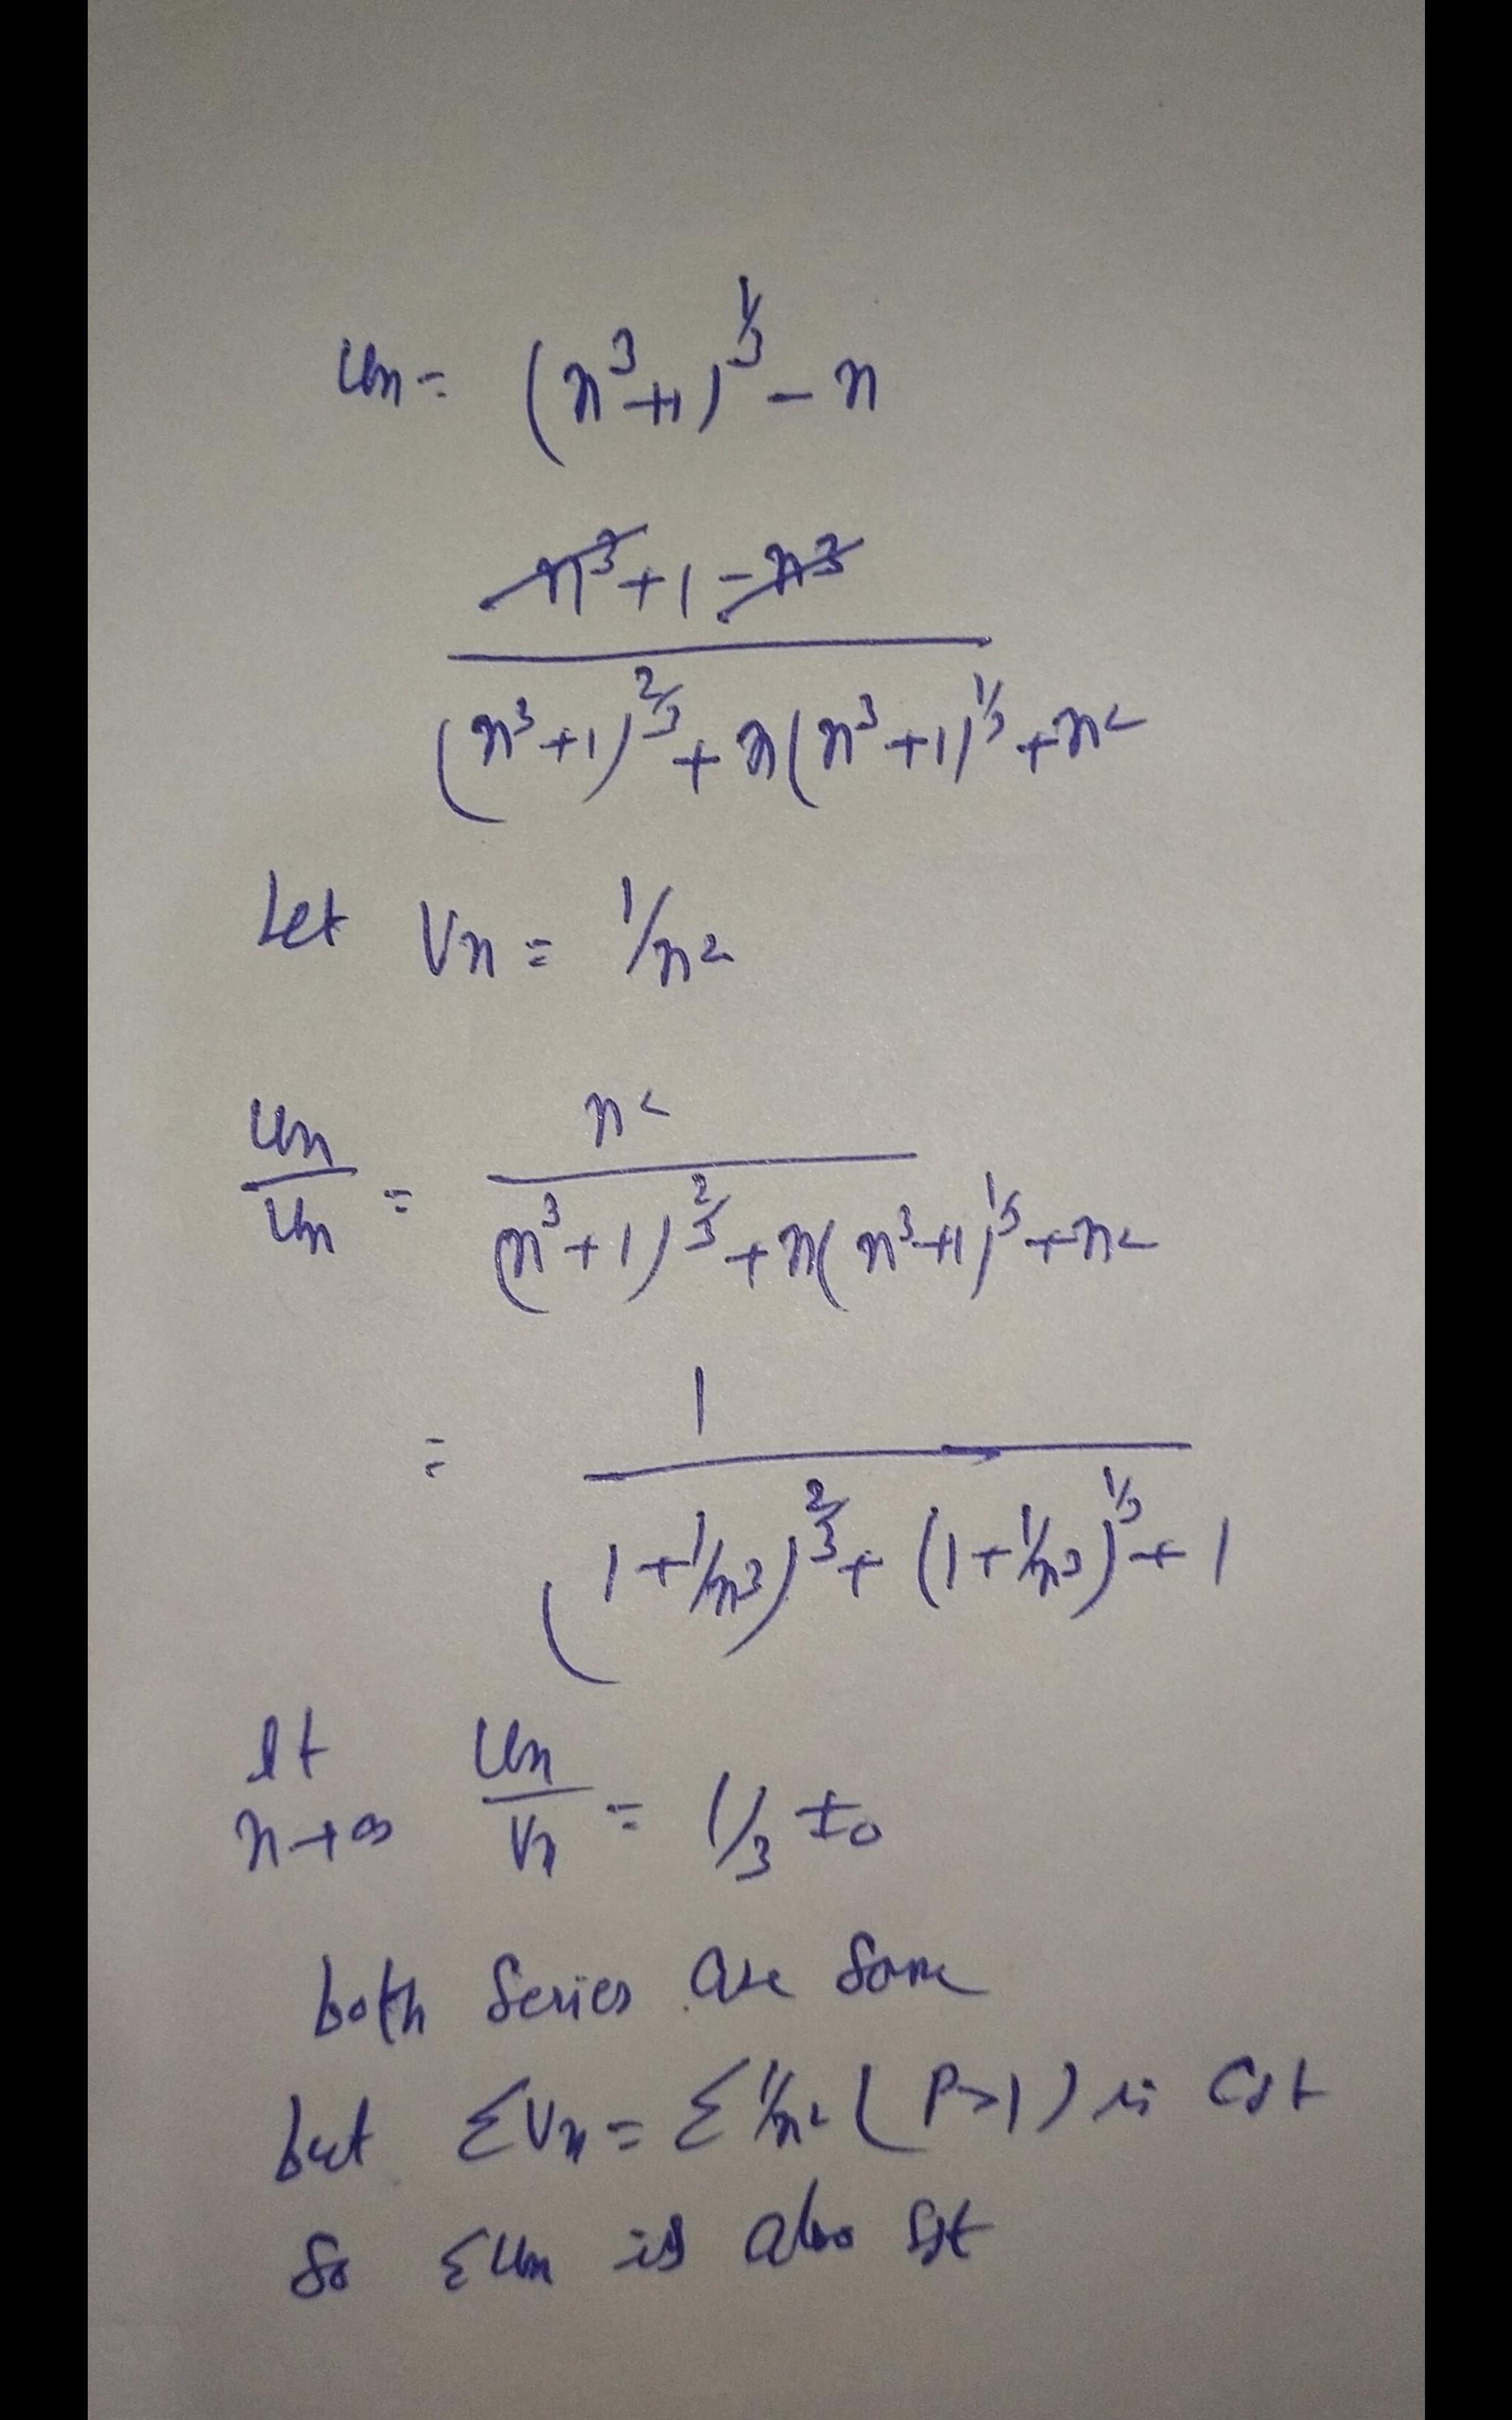 Un = (n³+1)^1/3 - n
n³+1-n³
(n³+1)^2/3 + n(n³+1)^1/3 + n²
Let Vn = 1/n²
Un n²
Un = (n³+1)^2/3 + n(n³+1)^1/3 + n²
= 1
(1+1/n³)^2/3 + (1+1/n³)^1/3 + 1
lt Un
n→∞ Vn = 1/3 ≠0
both Series are Same
but ΣVn = Σ1/n² (P>1) is Cgt
So ΣUn is also Cgt